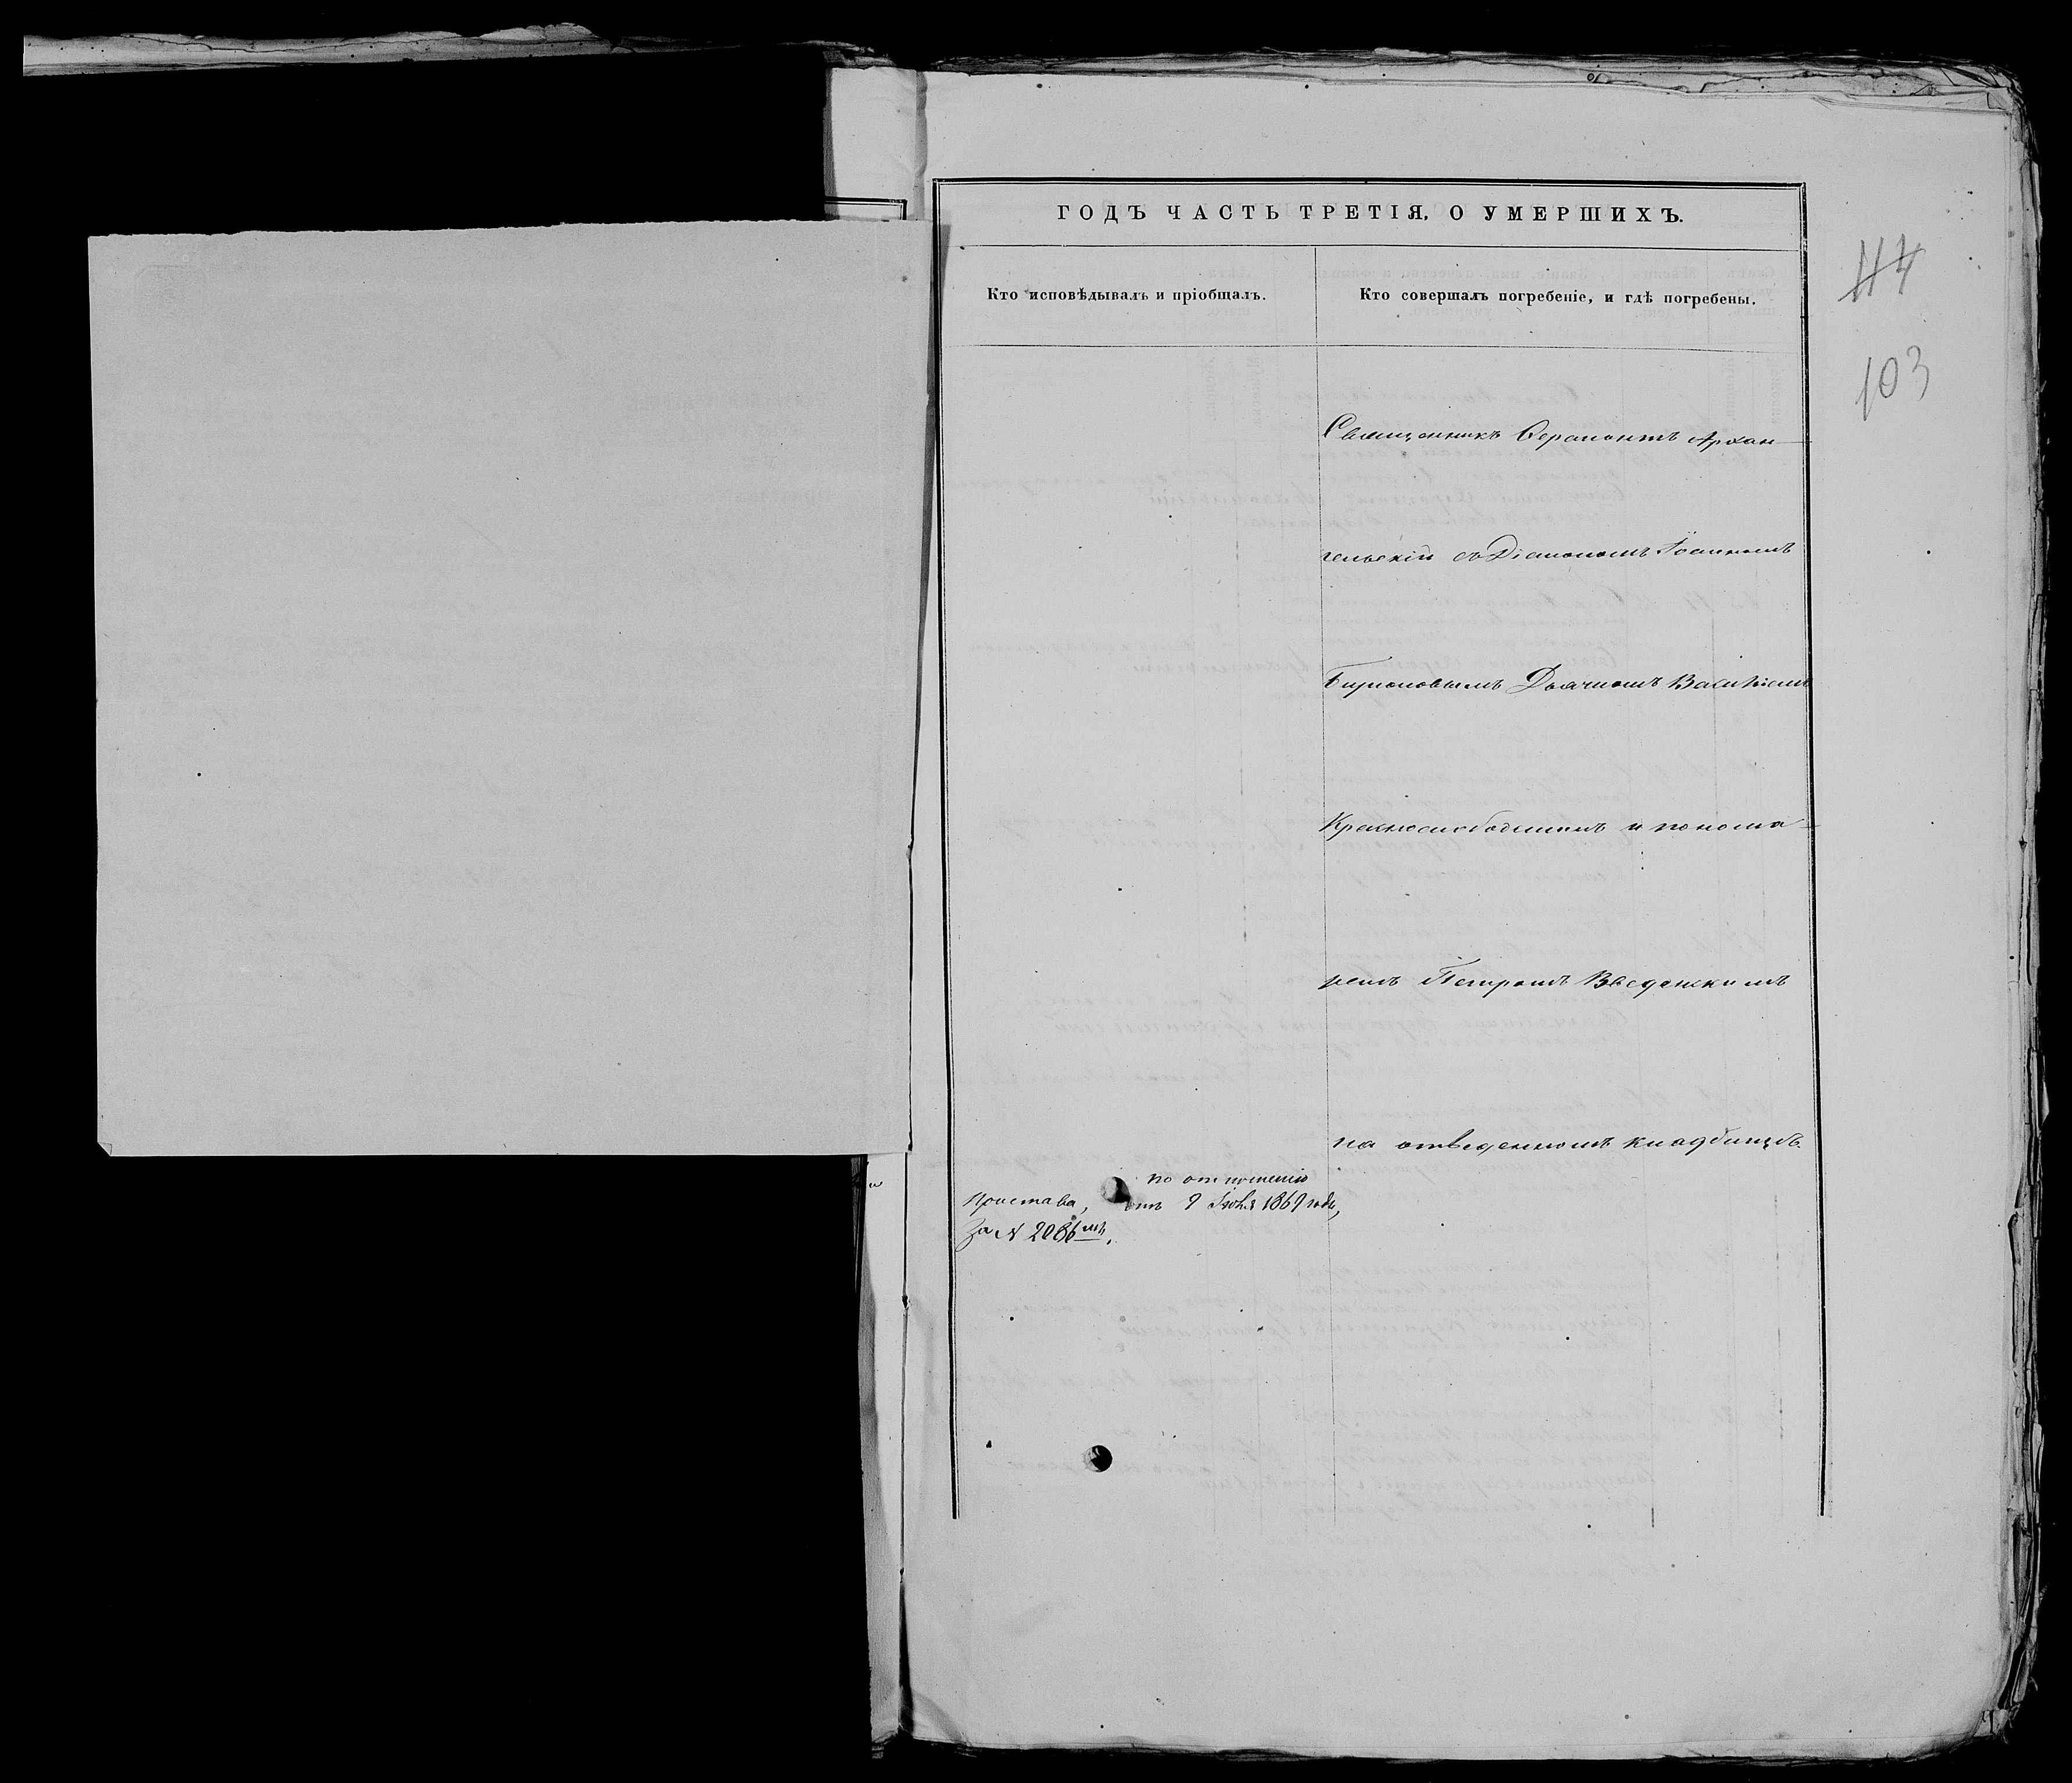 ГОДЪ ЧАСТЬ ТРЕТІЯ, О УМЕРШИХЪ.
Кто исповѣдывалъ и пріобщалъ.
Кто совершалъ погребеніе, и гдѣ погребены.
114
103
Священникъ Ферапонтъ Архан-
гельскій съ Діакономъ Іоанномъ
Дьячкомъ Василіемъ
Краснослободскимъ и понома-
ремъ Петромъ Введенскимъ
на отведенномъ кладбищѣ.
по отношенію
Пристава, отъ 9 Іюля 1869 года,
За № 2086мъ.